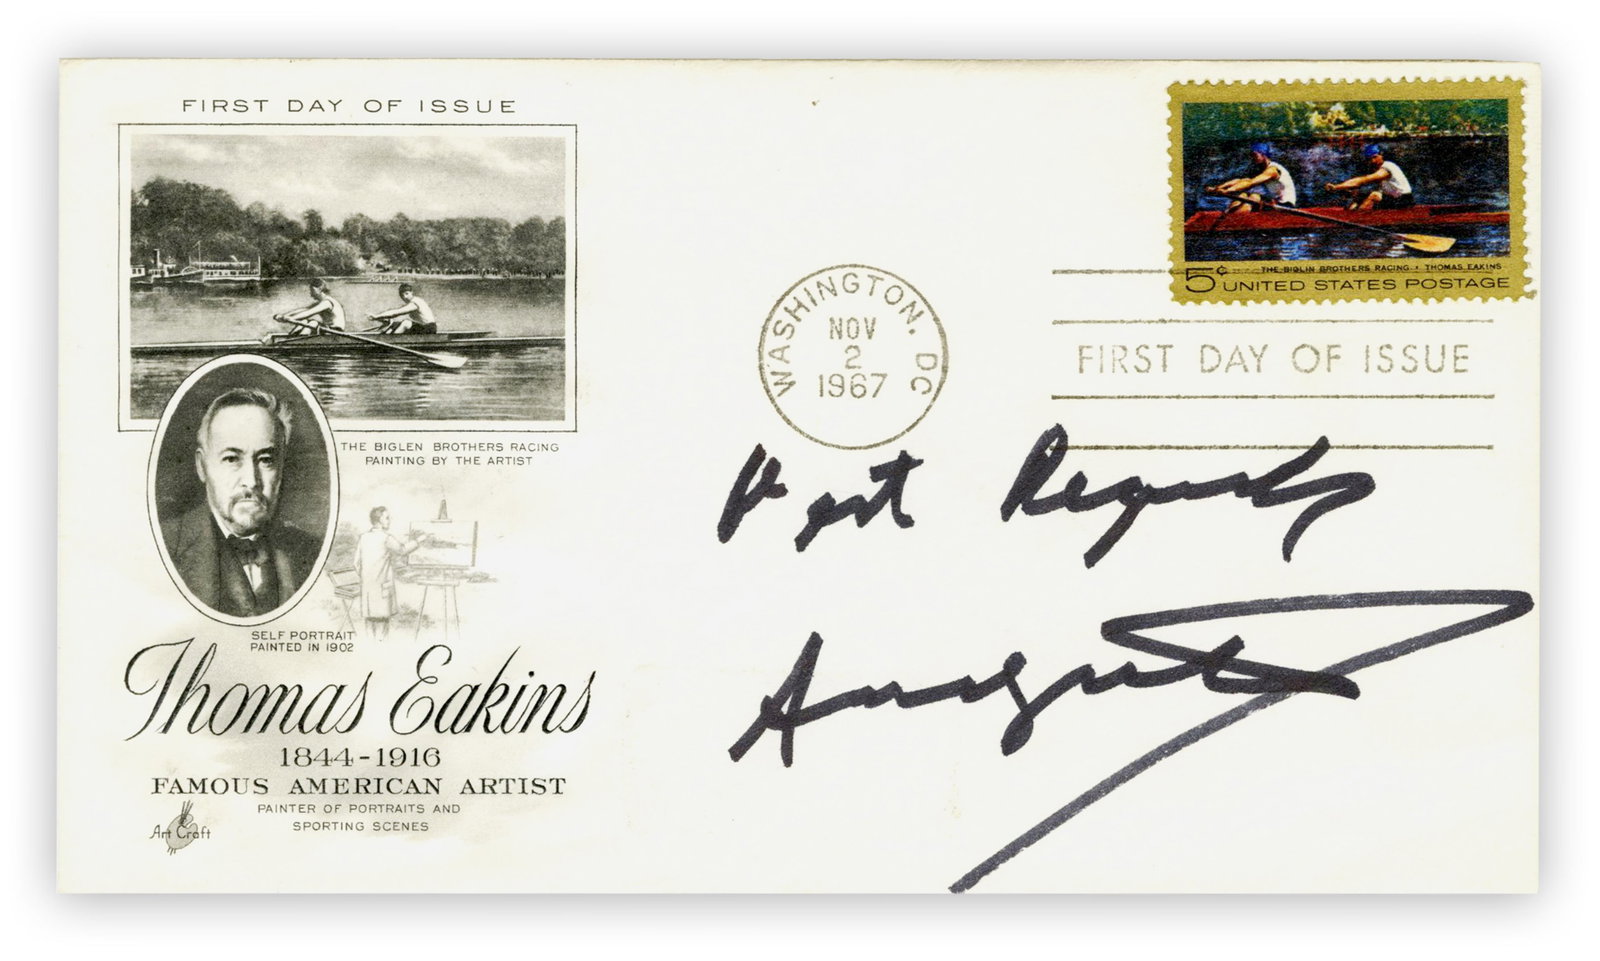 FIRST DAY OF ISSUE
THE BIGLEN BROTHERS RACING
PAINTING BY THE ARTIST
SELF PORTRAIT
PAINTED IN 1902
Thomas Eakins
1844-1916
FAMOUS AMERICAN ARTIST
PAINTER OF PORTRAITS AND
SPORTING SCENES
Art Craft
WASHINGTON, DC
NOV
2
1967
THE BIGLIN BROTHERS RACING • THOMAS EAKINS
5¢ UNITED STATES POSTAGE
FIRST DAY OF ISSUE
Best Regards
August